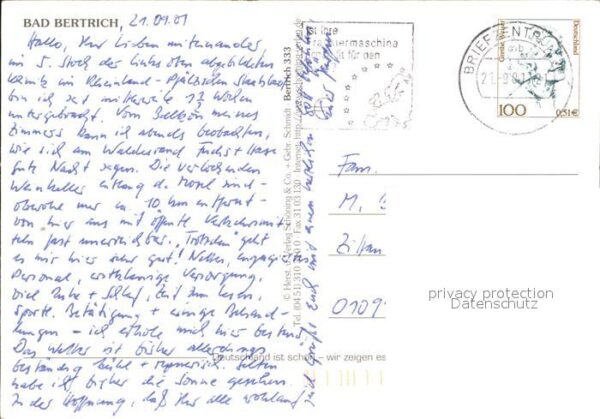 BAD BERTRICH, 21.09.01
Hallo, Ihr Lieben miteinander,
im 5. Stock des links oben abgebildeten
im Rheinland-Pfälzischen Staatsbad
bin ich seit mittlerweile Wochen
untergebracht. Vom Balkon meines
Zimmers kann ich abends beobachten,
wie sich am Waldesrand Fuchs + Hase
gute Nacht sagen. Die verlockenden
Weinkeller entlang der Mosel sind -
obwohl nur ca 10 km entfernt -
von hier aus mit öffentl. Verkehrsmit-
teln fast unerreichbar. Trotzdem geht
es mir hier sehr gut! Nettes, engagiertes
Personal, erstklassige Versorgung,
viel Ruhe + Schlaf, Zeit zum Lesen,
sportl. Betätigung + einige Behand-
lungen - ich erhole mich hier bestens.
Das Wetter ist bisher allerdings
beständig kühl + regnerisch. Selten
habe ich bisher die Sonne gesehen.
In der Hoffnung, daß Ihr alle wohlauf
seid grüßt Euch mit einem herzlichen
© Herst. u. Verlag Schöning & Co. + Gebr. Schmidt
Bertrich 333
Deutschland ist schön – wir zeigen es
ist Ihre
fit für den
BRIEFZENTRUM
100
0,51€
Deutschland
Fam.
M.
Zittau
privacy protection
Datenschutz